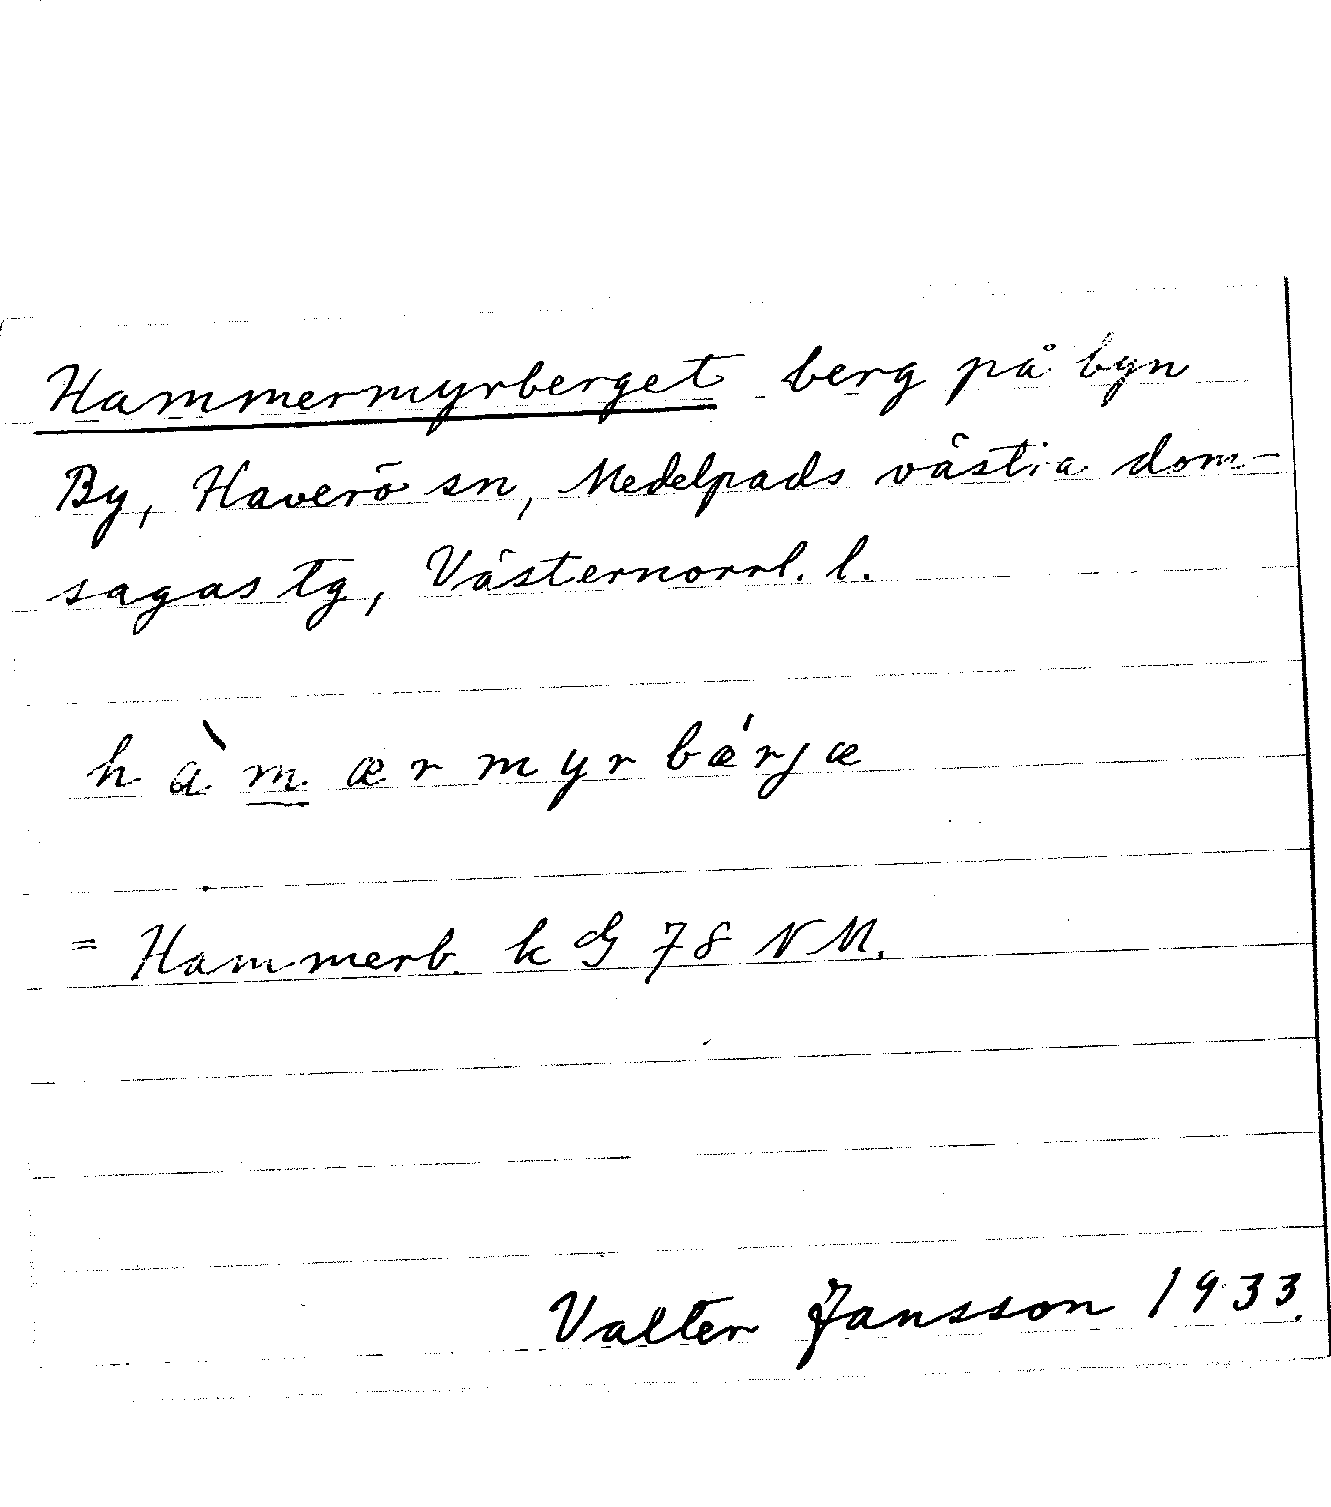 Hammermyrberget berg på byn
By, Haverö sn, Medelpads västra dom-
sagas tg, Västernorrl. l.
hàm̲ærmyrbǽrjæ
= Hammerb. k G 78 NM.
Valter Jansson 1933.